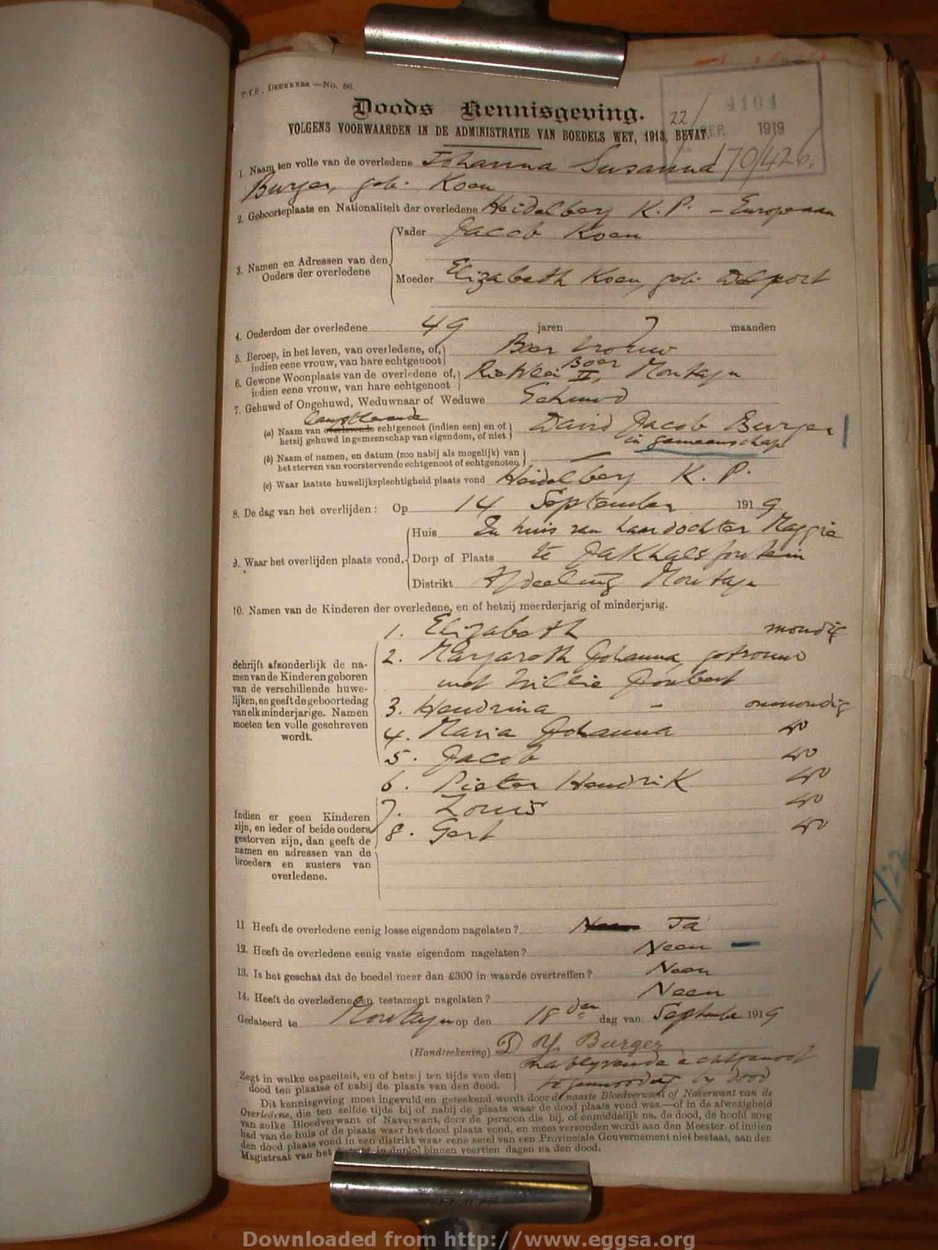 T.T.E., DRUKKERS —No. 56.
4104
22/ SEP. 1919
Doods Kennisgeving.
VOLGENS VOORWAARDEN IN DE ADMINISTRATIE VAN BOEDELS WET, 1913, BEVAT.
170/426.
1. Naam ten volle van de overledene Johanna Susanna
Burger, geb. Koen
2. Geboorteplaats en Nationaliteit der overledene Heidelberg K.P. - Europeaan
Vader Jacob Koen
3. Namen en Adressen van den Ouders der overledene
Moeder Elizabeth Koen, geb. Delport
4. Ouderdom der overledene 49 jaren 7 maanden
5. Beroep, in het leven, van overledene, of, indien eene vrouw, van hare echtgenoot Boer vrouw
Boer
6. Gewone Woonplaats van de overledene of, indien eene vrouw, van hare echtgenoot Rietvlei II, Montagu
7. Gehuwd of Ongehuwd, Weduwnaar of Weduwe Gehuwd
(a) Naam van overlevende echtgenoot (indien een) en of hetzij gehuwd in gemeenschap van eigendom, of niet David Jacob Burger
in gemeenschap
(b) Naam of namen, en datum (zoo nabij als mogelijk) van het sterven van voorstervende echtgenoot of echtgenoten —
(c) Waar laatste huwelijksplechtigheid plaats vond Heidelberg K. P.
8. De dag van het overlijden: Op 14 September 1919
Huis In huis van haar dochter Maggie
9. Waar het overlijden plaats vond. Dorp of Plaats te Jakhalsfontein
Distrikt Afdeeling Montagu
10. Namen van de Kinderen der overledene, en of hetzij meerderjarig of minderjarig.
1. Elizabeth mondig
Schrijft afzonderlijk de namen van de Kinderen geboren van de verschillende huwelijken, en geeft de geboortedag van elk minderjarige. Namen moeten ten volle geschreven wordt.
2. Margareth Johanna getrouwd
met Willie Joubert
3. Hendrina - onmondig
4. Maria Johanna do
5. Jacob do
6. Pieter Hendrik do
7. Louis do
8. Gert do
Indien er geen Kinderen zijn, en ieder of beide ouders gestorven zijn, dan geeft de namen en adressen van de broeders en zusters van overledene.
11 Heeft de overledene eenig losse eigendom nagelaten? Neen Ja
12. Heeft de overledene eenig vaste eigendom nagelaten? Neen
13. Is het geschat dat de boedel meer dan £300 in waarde overtreffen? Neen
14. Heeft de overledene een testament nagelaten? Neen
Gedateerd te Montagu op den 18 den dag van September 1919
(Handteekening) D J Burger
Nablyvende echtgenoot
Zegt in welke capaciteit, en of hetzij ten tijde van den dood ten plaatse of nabij de plaats van den dood. tegenwoordig by dood
Dit kennisgeving moet ingevuld en geteekend wordt door de naaste Bloedverwant of Naverwant van de
Overledene, die ten zelfde tijde bij of nabij de plaats waar de dood plaats vond was—of in de afwezigheid
van zulke Bloedverwant of Naverwant, door de persoon die bij, of onmiddelijk na, de dood, de hoofd zorg
had van de huis of de plaats waar het dood plaats vond, en moet verzonden wordt aan den Meester of indien
den dood plaats vond in een distrikt waar eene zetel van een Provinciale Gouvernement niet bestaat, aan den
Magistraat van het in duplo) binnen veertien dagen na den dood.
Downloaded from http://www.eggsa.org